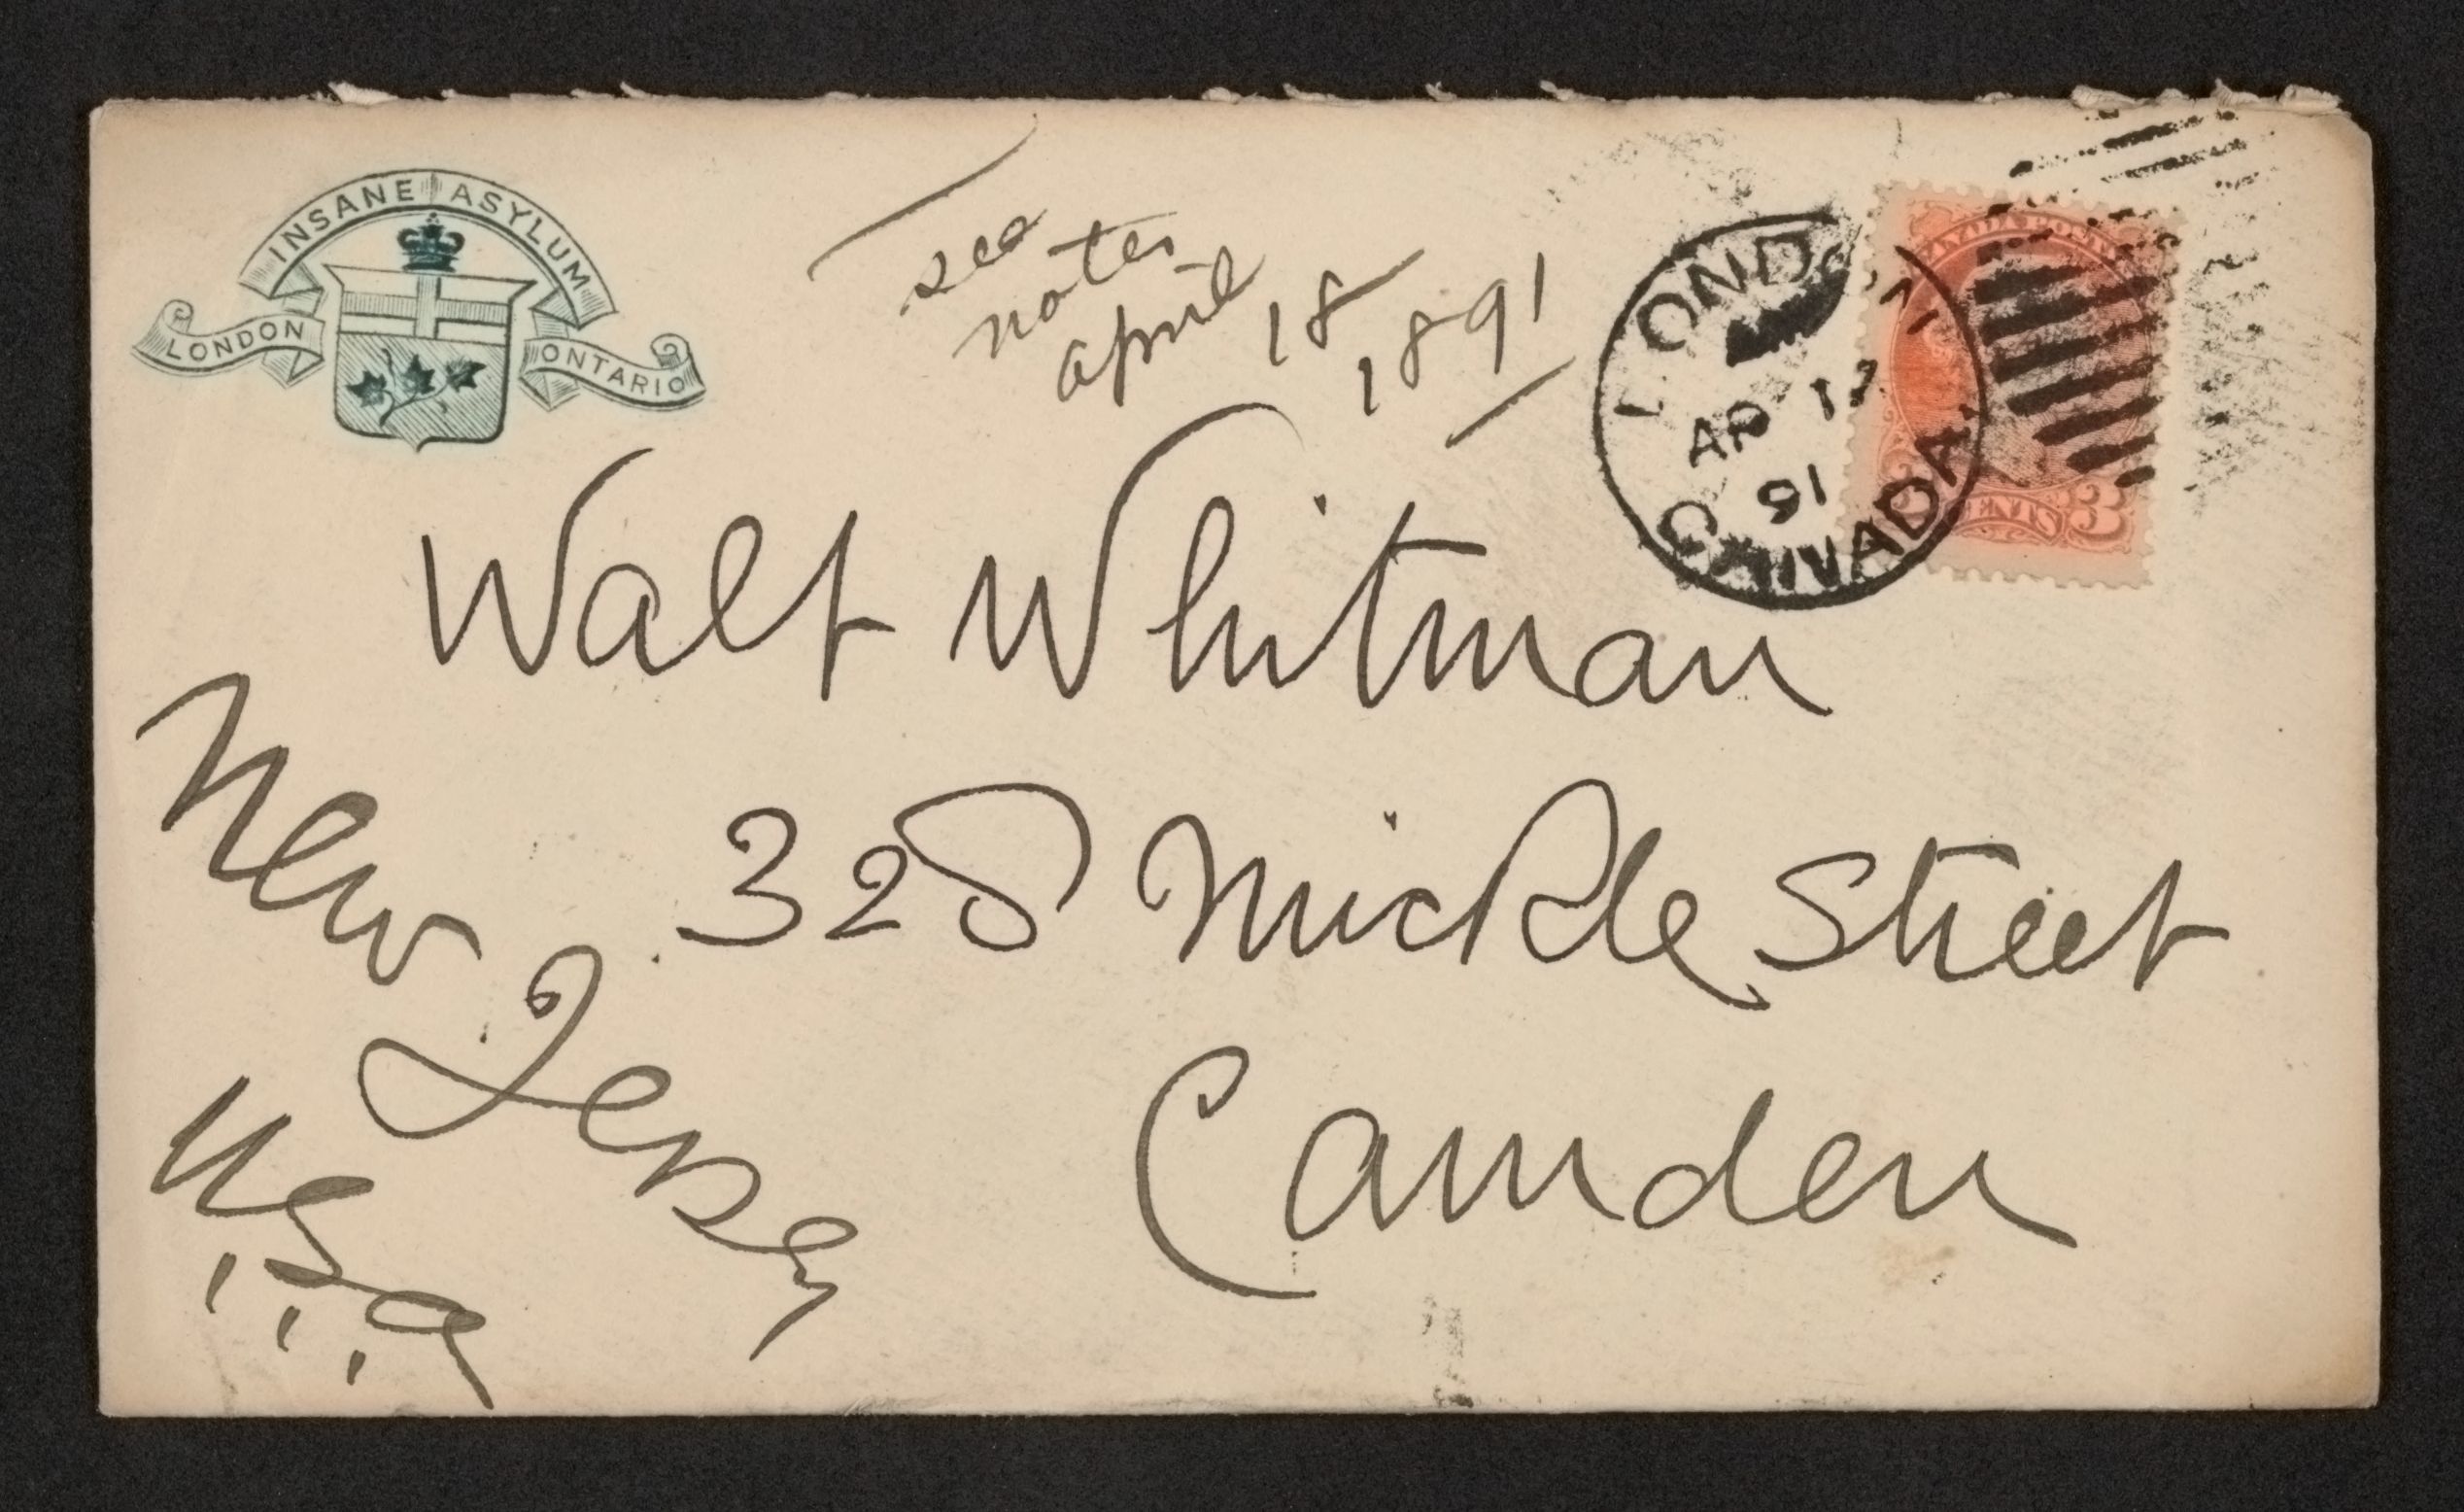 INSANE ASYLUM
LONDON ONTARIO
see
notes
april 18
1891
LONDON
AP 17
91
CANADA
CANADA POSTAGE
3 CENTS 3
Walt Whitman
328 Mickle Street
Camden
New Jersey
U.S.a